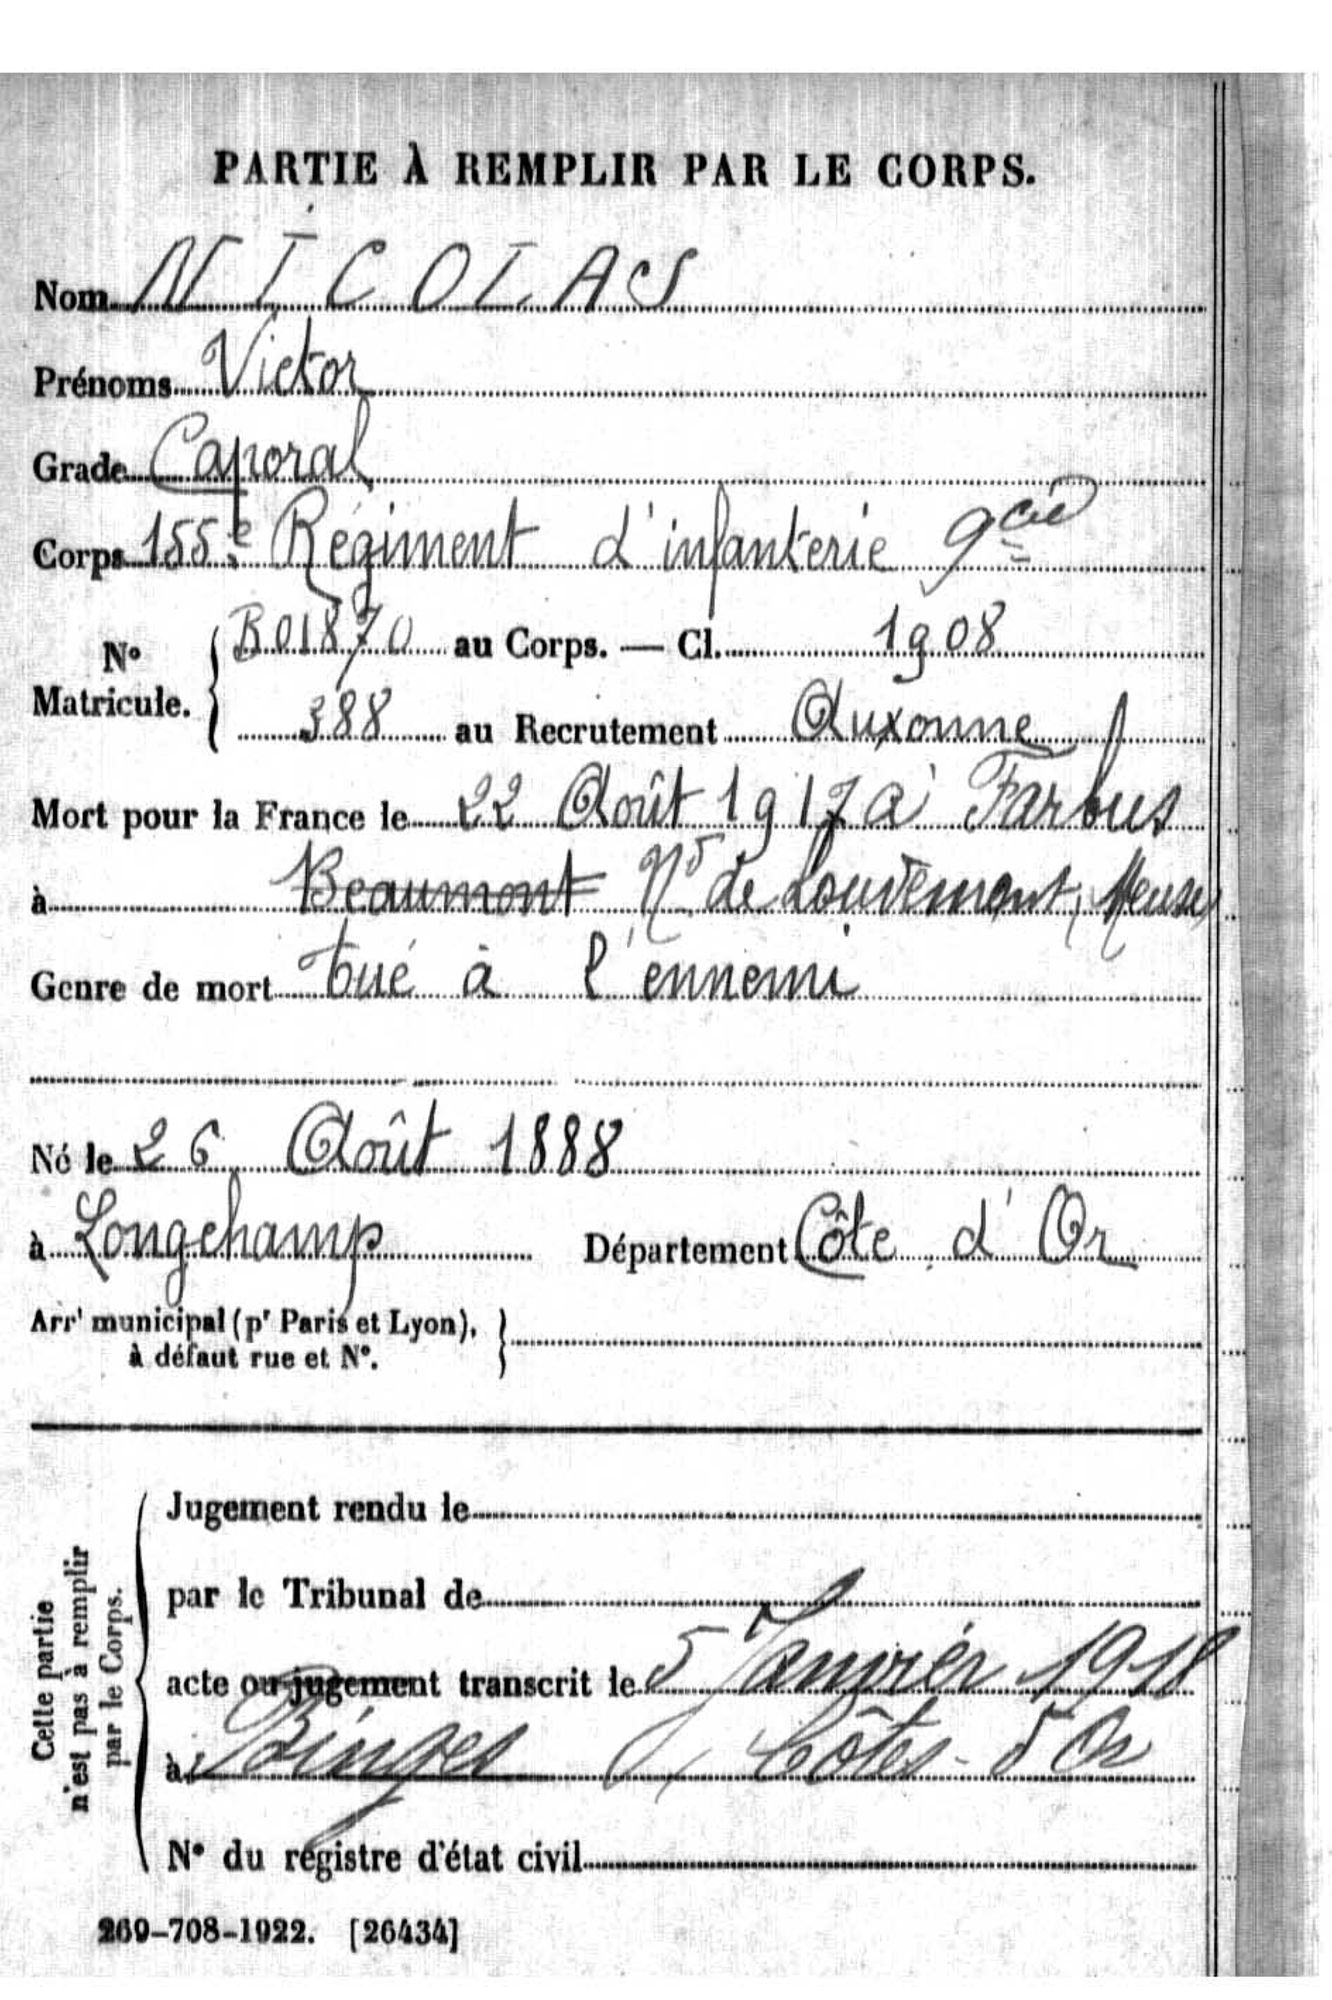 PARTIE À REMPLIR PAR LE CORPS.
Nom NICOLAS
Prénoms Victor
Grade Caporal
Corps 155e Régiment d'infanterie 9cie
N° Matricule. { B01870 au Corps. — Cl. 1908
388 au Recrutement Auxonne
Mort pour la France le 22 Août 1917 à Farbus
à Beaumont Nd de Louvemont, Meuse
Genre de mort tué à l'ennemi
Né le 26 Août 1888
à Longchamp Département Côte d'Or
Arrt municipal (pr Paris et Lyon),
à défaut rue et N°.
Cette partie n'est pas à remplir par le Corps.
Jugement rendu le
par le Tribunal de
acte ou jugement transcrit le 5 Janvier 1918
à Binges Côtes-d'Or
N° du registre d'état civil
269-708-1922. [26434]